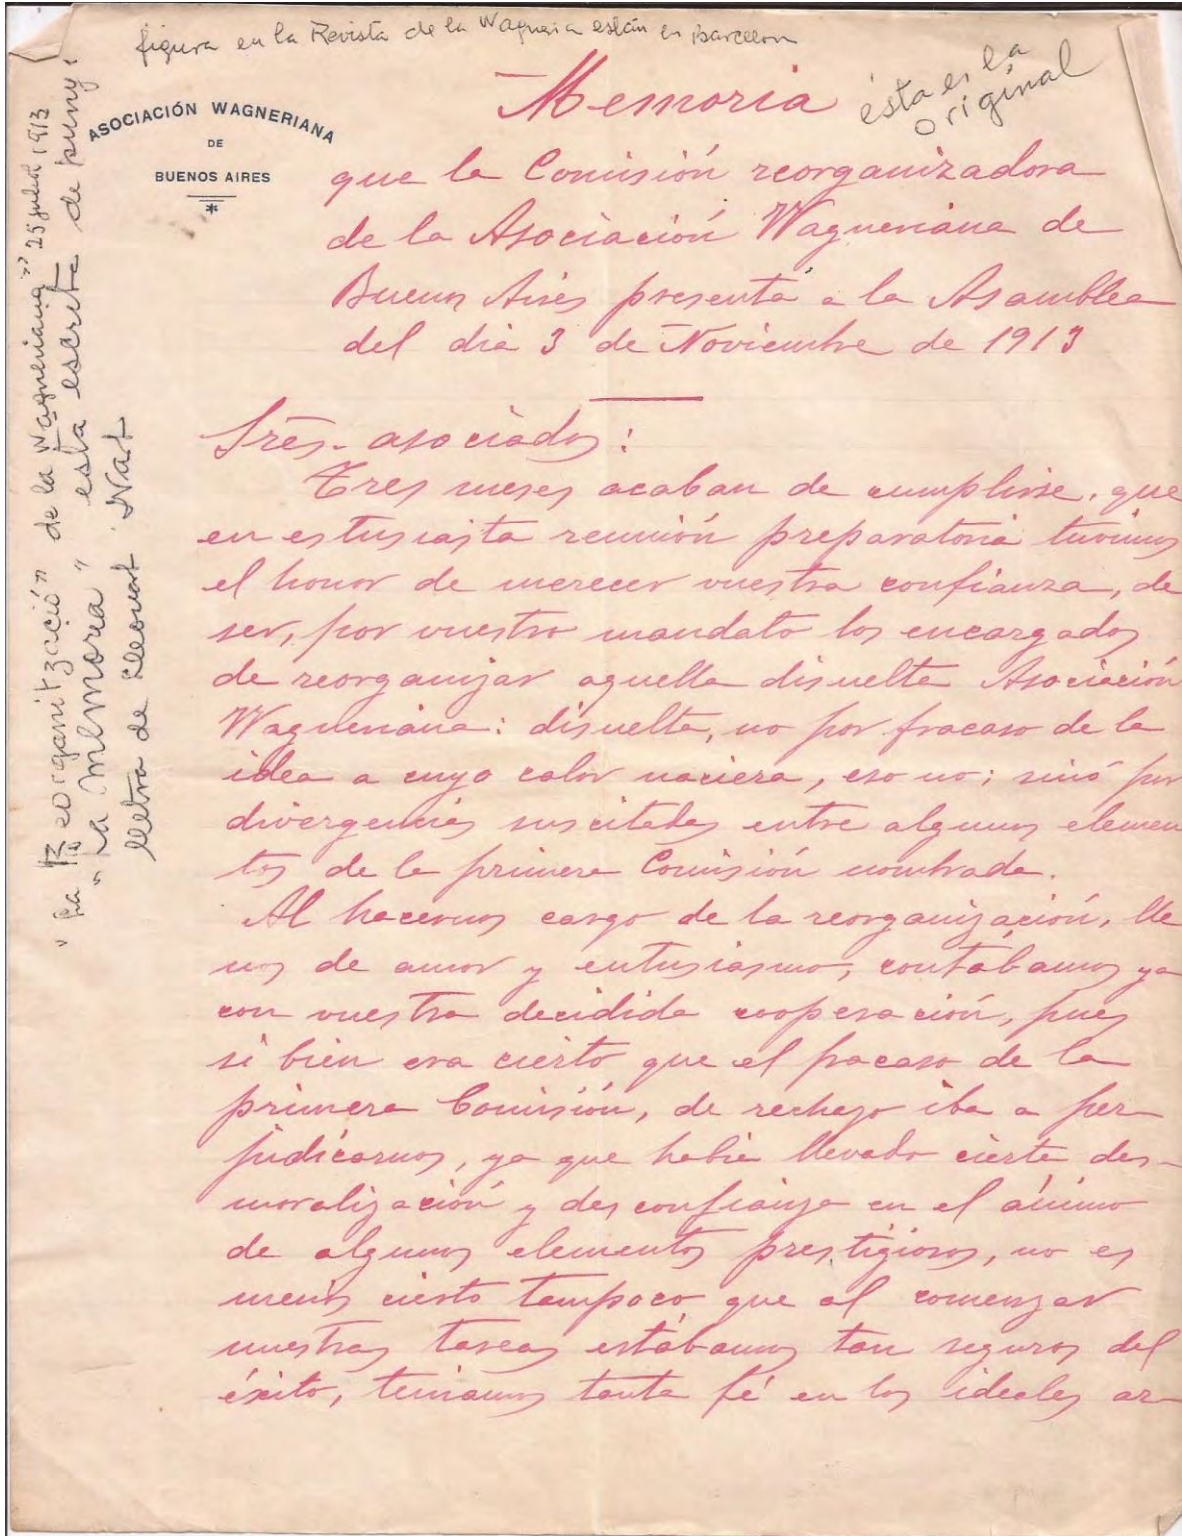 figura en la Revista de la Wagneria están en Barcelon
ésta es la
original
ASOCIACIÓN WAGNERIANA
DE
BUENOS AIRES
Memoria
que la Comisión reorganizadora
de la Asociación Wagneriana de
Buenos Aires presenta a la Asamblea
del dia 3 de Noviembre de 1913
Sres. asociados:
Tres meses acaban de cumplirse, que
en estusiasta reunión preparatoria tuvimos
el honor de merecer vuestra confianza, de
ser, por vuestro mandato los encargados
de reorganizar aquella disuelta Asociación
Wagneriana: disuelta, no por fracaso de la
idea a cuyo calor naciera, eso no; sinó por
divergencias suscitadas entre algunos elemen
tos de la primera Comisión nombrada.
Al hacernos cargo de la reorganización, lle
nos de amor y entusiasmo, contábamos ya
con vuestra decidida cooperación, pues
si bien era cierto que el fracaso de la
primera Comisión, de rechazo iba a per-
judicarnos, ya que habia llevado cierta des-
moralización y desconfianza en el ánimo
de algunos elementos prestigiosos, no es
menos cierto tampoco que al comenzar
nuestras tareas estábamos tan seguros del
éxito, teniamos tanta fé en los ideales ar-
"La reorganització" de la Wagneriana" 25 juliol 1913
"La Memoria" está escrita de puny i
lletra de Lleonart Nart